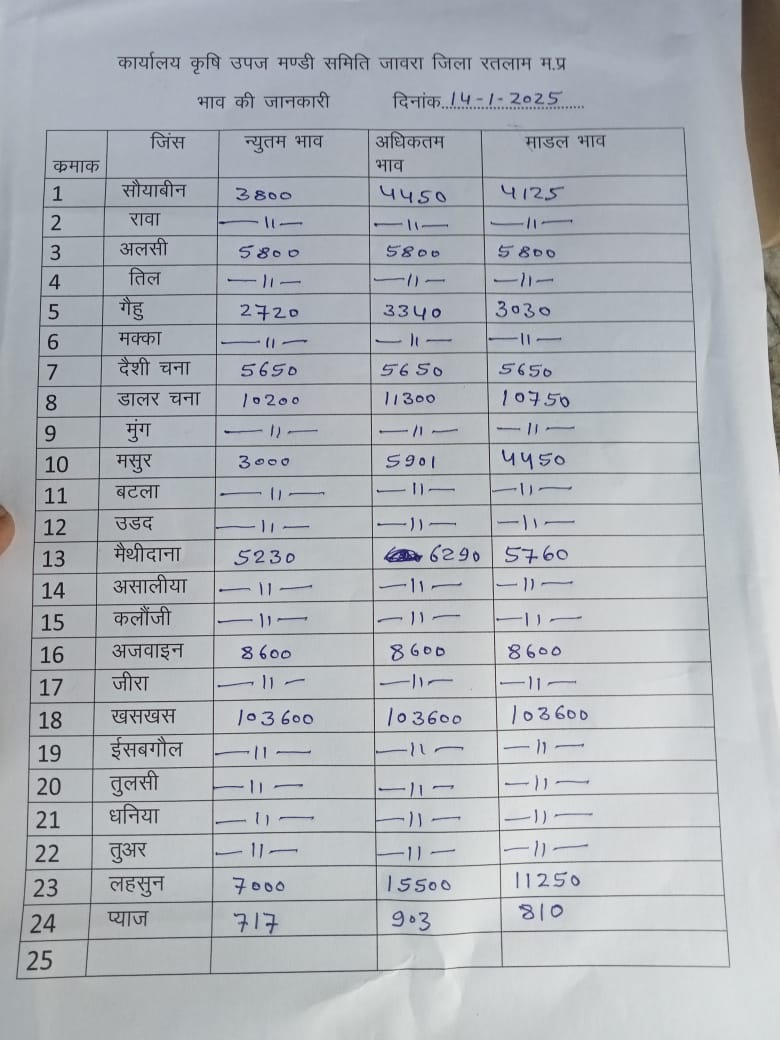 कार्यालय कृषि उपज मण्डी समिति जावरा जिला रतलाम म.प्र
भाव की जानकारी दिनांक..14-1-2025......
कमाक जिंस न्युतम भाव अधिकतम भाव माडल भाव
1 सौयाबीन 3800 4450 4125
2 रावा —11— —11— —11—
3 अलसी 5800 5800 5800
4 तिल —11— —11— —11—
5 गैहु 2720 3340 3030
6 मक्का —11— —11— —11—
7 दैशी चना 5650 5650 5650
8 डालर चना 10200 11300 10750
9 मुंग —11— —11— —11—
10 मसुर 3000 5901 4450
11 बटला —11— —11— —11—
12 उडद —11— —11— —11—
13 मैथीदाना 5230 6290 5760
14 असालीया —11— —11— —11—
15 कलौंजी —11— —11— —11—
16 अजवाइन 8600 8600 8600
17 जीरा —11— —11— —11—
18 खसखस 103600 103600 103600
19 ईसबगौल —11— —11— —11—
20 तुलसी —11— —11— —11—
21 धनिया —11— —11— —11—
22 तुअर —11— —11— —11—
23 लहसुन 7000 15500 11250
24 प्याज 717 903 810
25